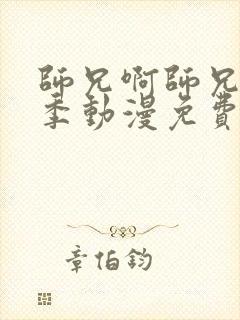 師兄啊師兄
季動漫免費
章伯鈞